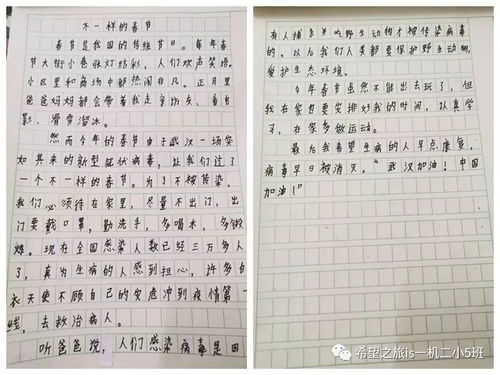 不一样的春节
春节是我国的传统节日。每年春
节大街小巷张灯结彩，人们欢声笑语。
小区里和商场中都热闹非凡。正月里
爸爸妈妈都会带着我走亲访友、看电
影、滑雪溜冰。
然而今年的春节由于武汉一场突
如其来的新型冠状病毒，让我们过了
一个不一样的春节。为了不被传染，
我们必须待在家里，尽量不出门，出
门要戴口罩，勤洗手，多喝水，多锻
炼。现在全国感染人数已经三万多人
了，真为生病的人感到担心，许多白
衣天使不顾自己的安危冲到疫情第一
线，去救治病人。
听爸爸说，人们感染病毒是因
有人捕杀吃野生动物才被传染病毒
的。以后我们人类都要保护野生动物，
爱护生态环境。
今年春节虽然不能出去玩了，但
我在家也要安排好我的时间，认真学
习，在家多做运动。
最后我希望生病的人早点康复，
病毒早日被消灭。“武汉加油！中国
加油！”
希望之旅is一机二小5班